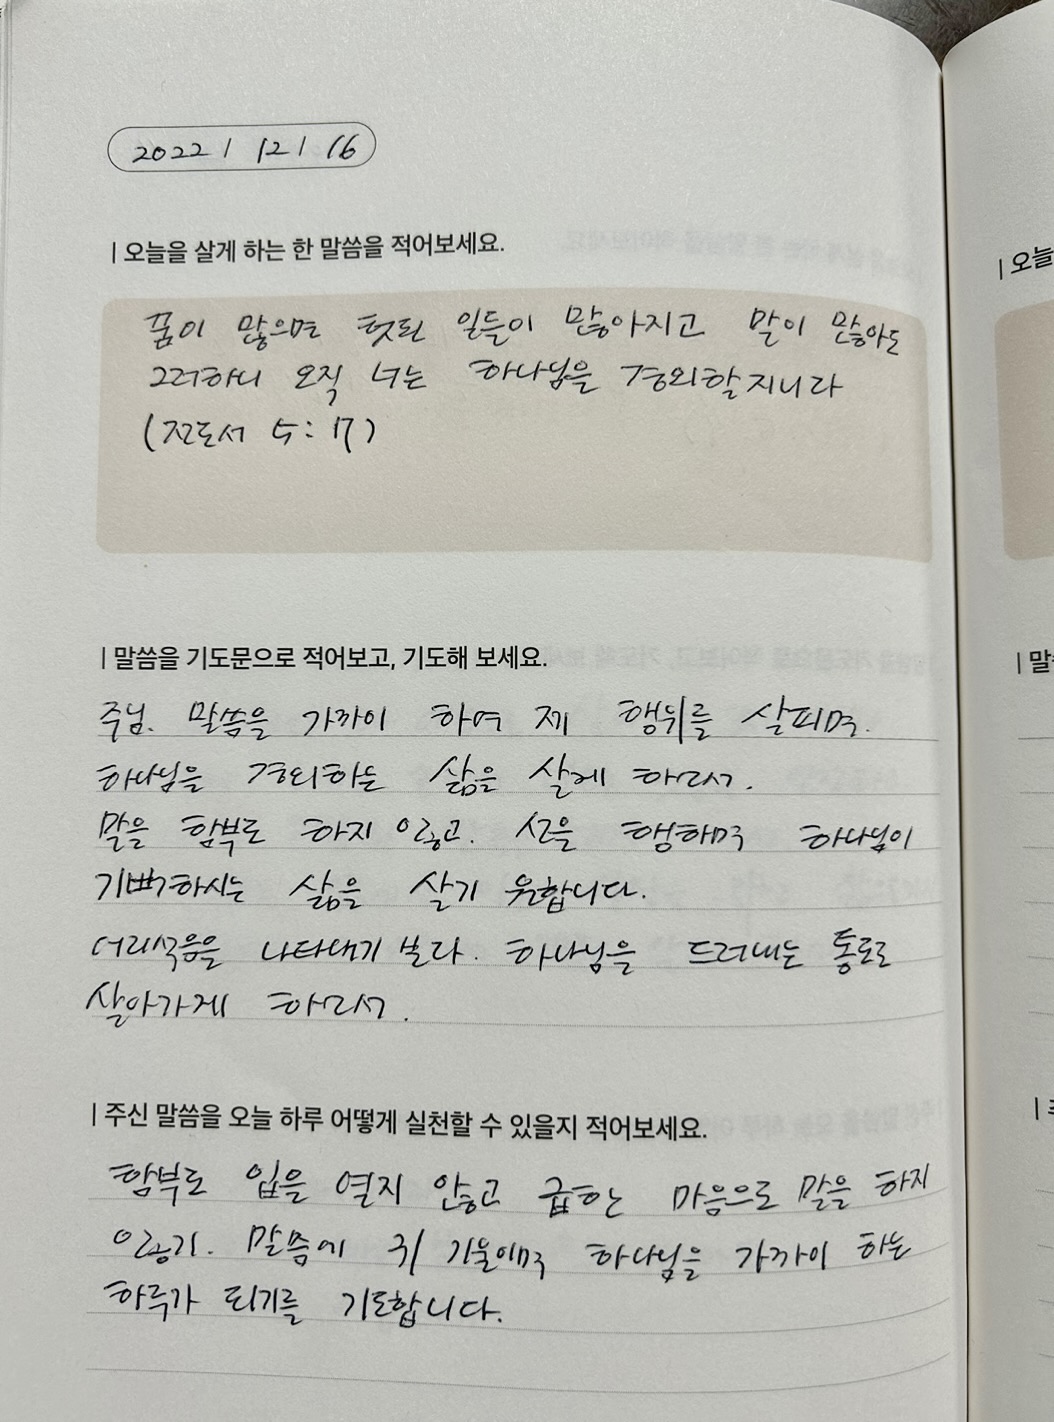 2022 / 12 / 16
| 오늘을 살게 하는 한 말씀을 적어보세요.
꿈이 많으면 헛된 일들이 많아지고 말이 많아도
그러하니 오직 너는 하나님을 경외할지니라
(전도서 5:17)
| 말씀을 기도문으로 적어보고, 기도해 보세요.
주님. 말씀을 가까이 하여 제 행위를 살피며.
하나님을 경외하는 삶을 살게 하소서.
말을 함부로 하지 않고. 선을 행하며 하나님이
기뻐하시는 삶을 살기 원합니다.
어리석음을 나타내기 보다. 하나님을 드러내는 통로로
살아가게 하소서.
| 주신 말씀을 오늘 하루 어떻게 실천할 수 있을지 적어보세요.
함부로 입을 열지 않고 급한 마음으로 말을 하지
않기. 말씀에 귀 기울이며 하나님을 가까이 하는
하루가 되기를 기도합니다.
| 오늘
| 말